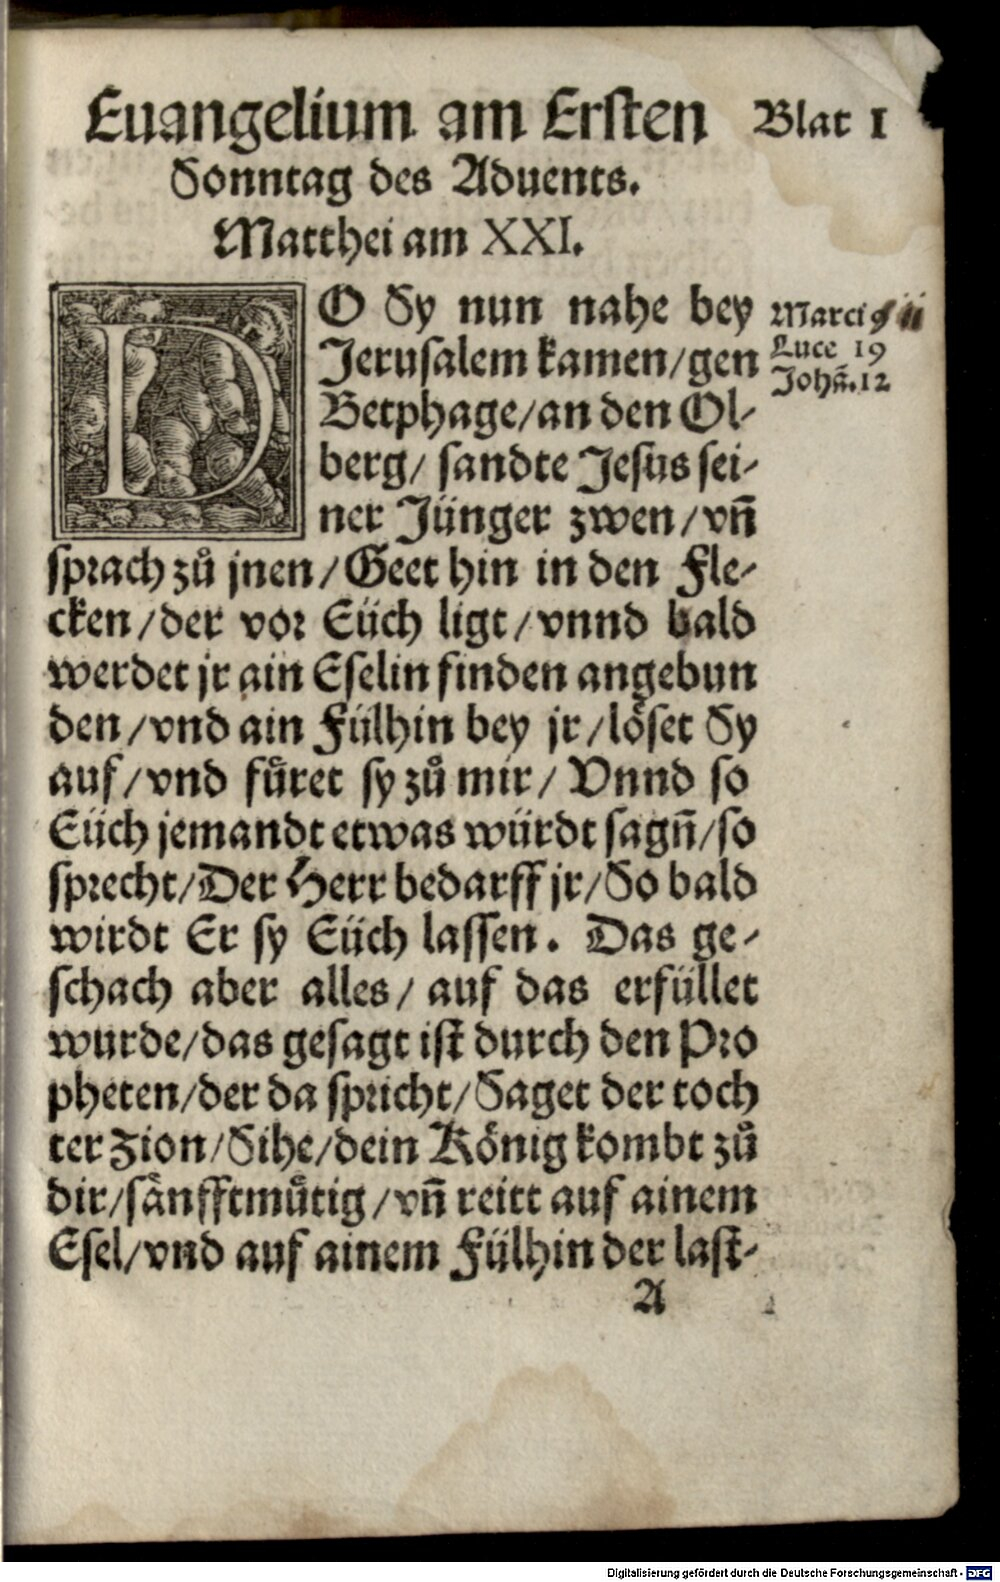 Euangelium am Ersten Blat 1
Sonntag des Aduents.
Matthei am XXI.
DO Sy nun nahe bey
Jerusalem kamen/gen
Betphage/an den Ol-
berg/ sandte Jesus sei-
ner Jünger zwen/vñ
sprach zů jnen/Geet hin in den Fle-
cken/der vor Eüch ligt/vnnd bald
werdet jr ain Eselin finden angebun
den/vnd ain Fülhin bey jr/löset Sy
auf/vnd fůret sy zů mir/ Vnnd so
Eüch jemandt etwas würdt sagñ/so
sprecht/Der Herr bedarff jr/So bald
wirdt Er sy Eüch lassen. Das ge-
schach aber alles/ auf das erfüllet
wurde/das gesagt ist durch den Pro
pheten/der da spricht/Saget der toch
ter Zion/Sihe/dein König kombt zů
dir/sänfftmůtig/vñ reitt auf ainem
Esel/vnd auf ainem Fülhin der last-
A
Marci ii
Luce 19
Johañ.12
Digitalisierung gefördert durch die Deutsche Forschungsgemeinschaft - DFG